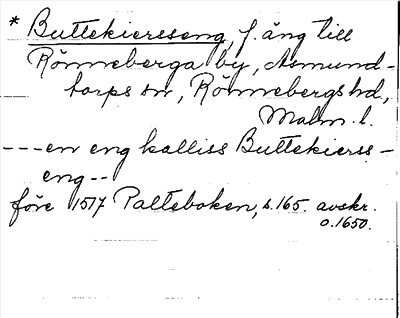 * Buttekiersseng, f. äng till
Rönneberga by, Asmund-
torps sn, Rönnebergs hd,
Malm. l.
---en eng kalliss Buttekierss-
eng--
före 1517 Palteboken, s. 165. avskr.
o. 1650.